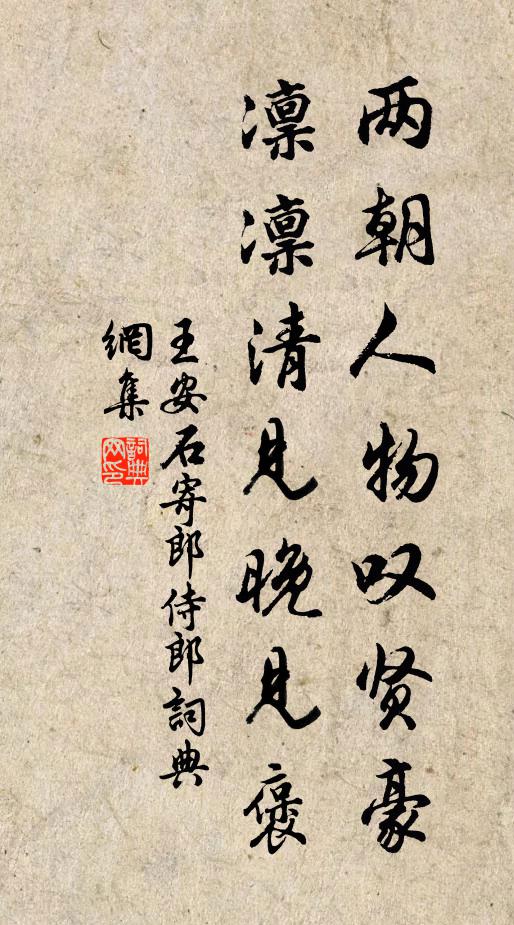 两朝人物叹贤豪
凛凛清见晚见褒
王安石寄郎侍郎詞典
網集
詞典网印